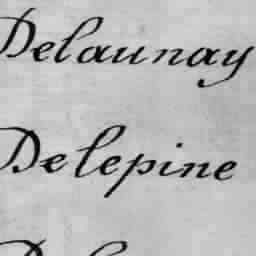 Delaunay
Delepine